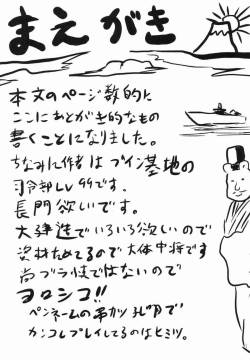 まえがき
本文のページ数的に
ここにあとがき的なもの
書くことになりました。
ちなみに作者はブイン基地の
司令部Lv99です.
長門欲しいです。
大建造でいろいろ欲しいので
資材ためてるので大体中将です
尚ブラ鎮ではないので
ヨロシコ!!
ペンネームの串カツ
でカンコレプレイしてるのはヒミツ。